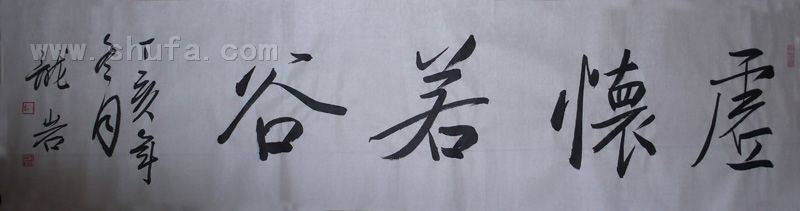 虚懷若谷
丁亥年
冬月
龍岩
www.shufa.com